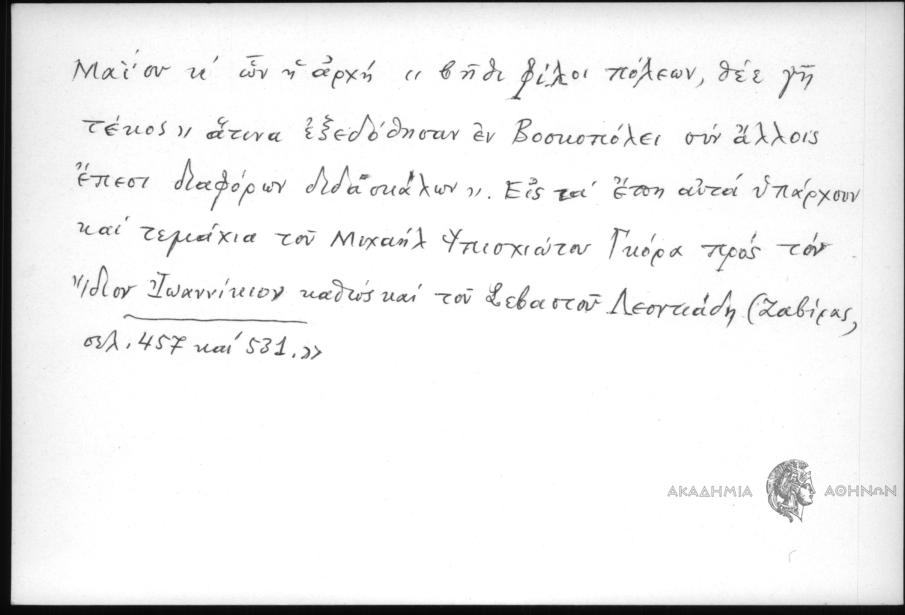 Μαΐου κ' ὧν ἡ ἀρχή « βῆθι φίλοι πόλεων, θέε γῆ
τέκος» ἅτινα ἐξεδόθησαν ἐν Βοσκοπόλει σύν ἄλλοις
ἔπεσι διαφόρων διδασκάλων». Εἰς τά ἔπη αὐτά ὑπάρχουν
καί τεμάχια τοῦ Μιχαήλ Ὑπισχιώτου Γκόρα πρός τόν
ἴδιον Ἰωαννίκιον καθώς καί τοῦ Σεβαστοῦ Λεοντιάδη (Ζαβίρας,
σελ. 457 καί 531.»
ΑΚΑΔΗΜΙΑ ΑΘΗΝΩΝ